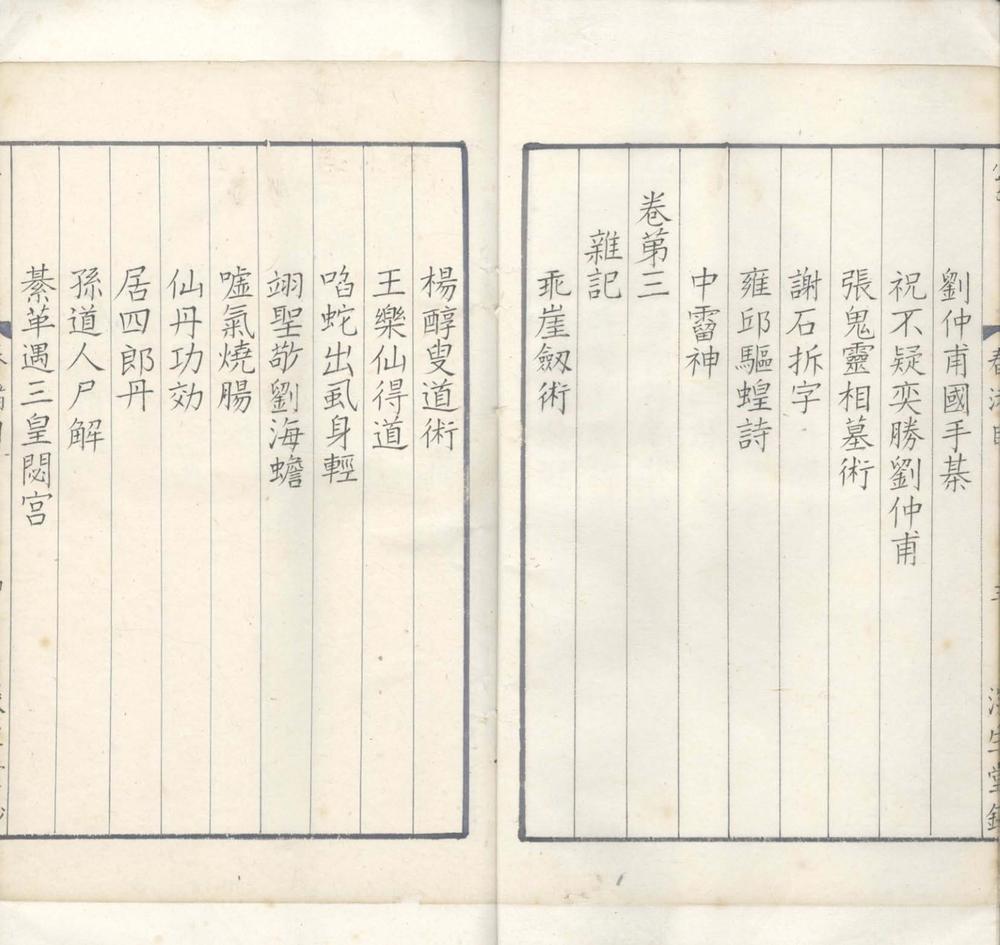 劉仲甫國手棊
祝不疑奕勝劉仲甫
張鬼靈相墓術
謝石拆字
雍邱驅蝗詩
中霤神
卷第三
雜記
乖崖劔術
楊醇叟道術
王樂仙得道
啗蛇出虱身輕
翊聖敬劉海蟾
噓氣燒腸
仙丹功効
居四郎丹
孫道人尸解
綦革遇三皇閟宫